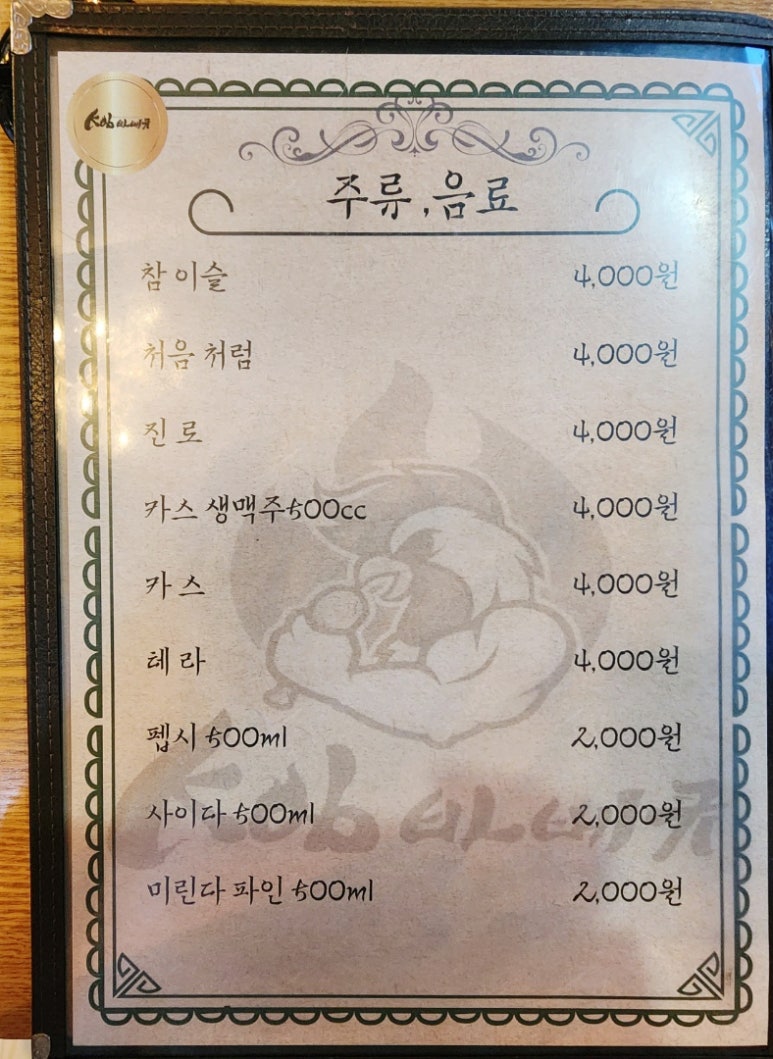 바베큐
주류, 음료
참 이슬 4,000원
처음 처럼 4,000원
진 로 4,000원
카스 생맥주 500cc 4,000원
카 스 4,000원
테 라 4,000원
펩시 500ml 2,000원
사이다 500ml 2,000원
미린다 파인 500ml 2,000원
바베큐